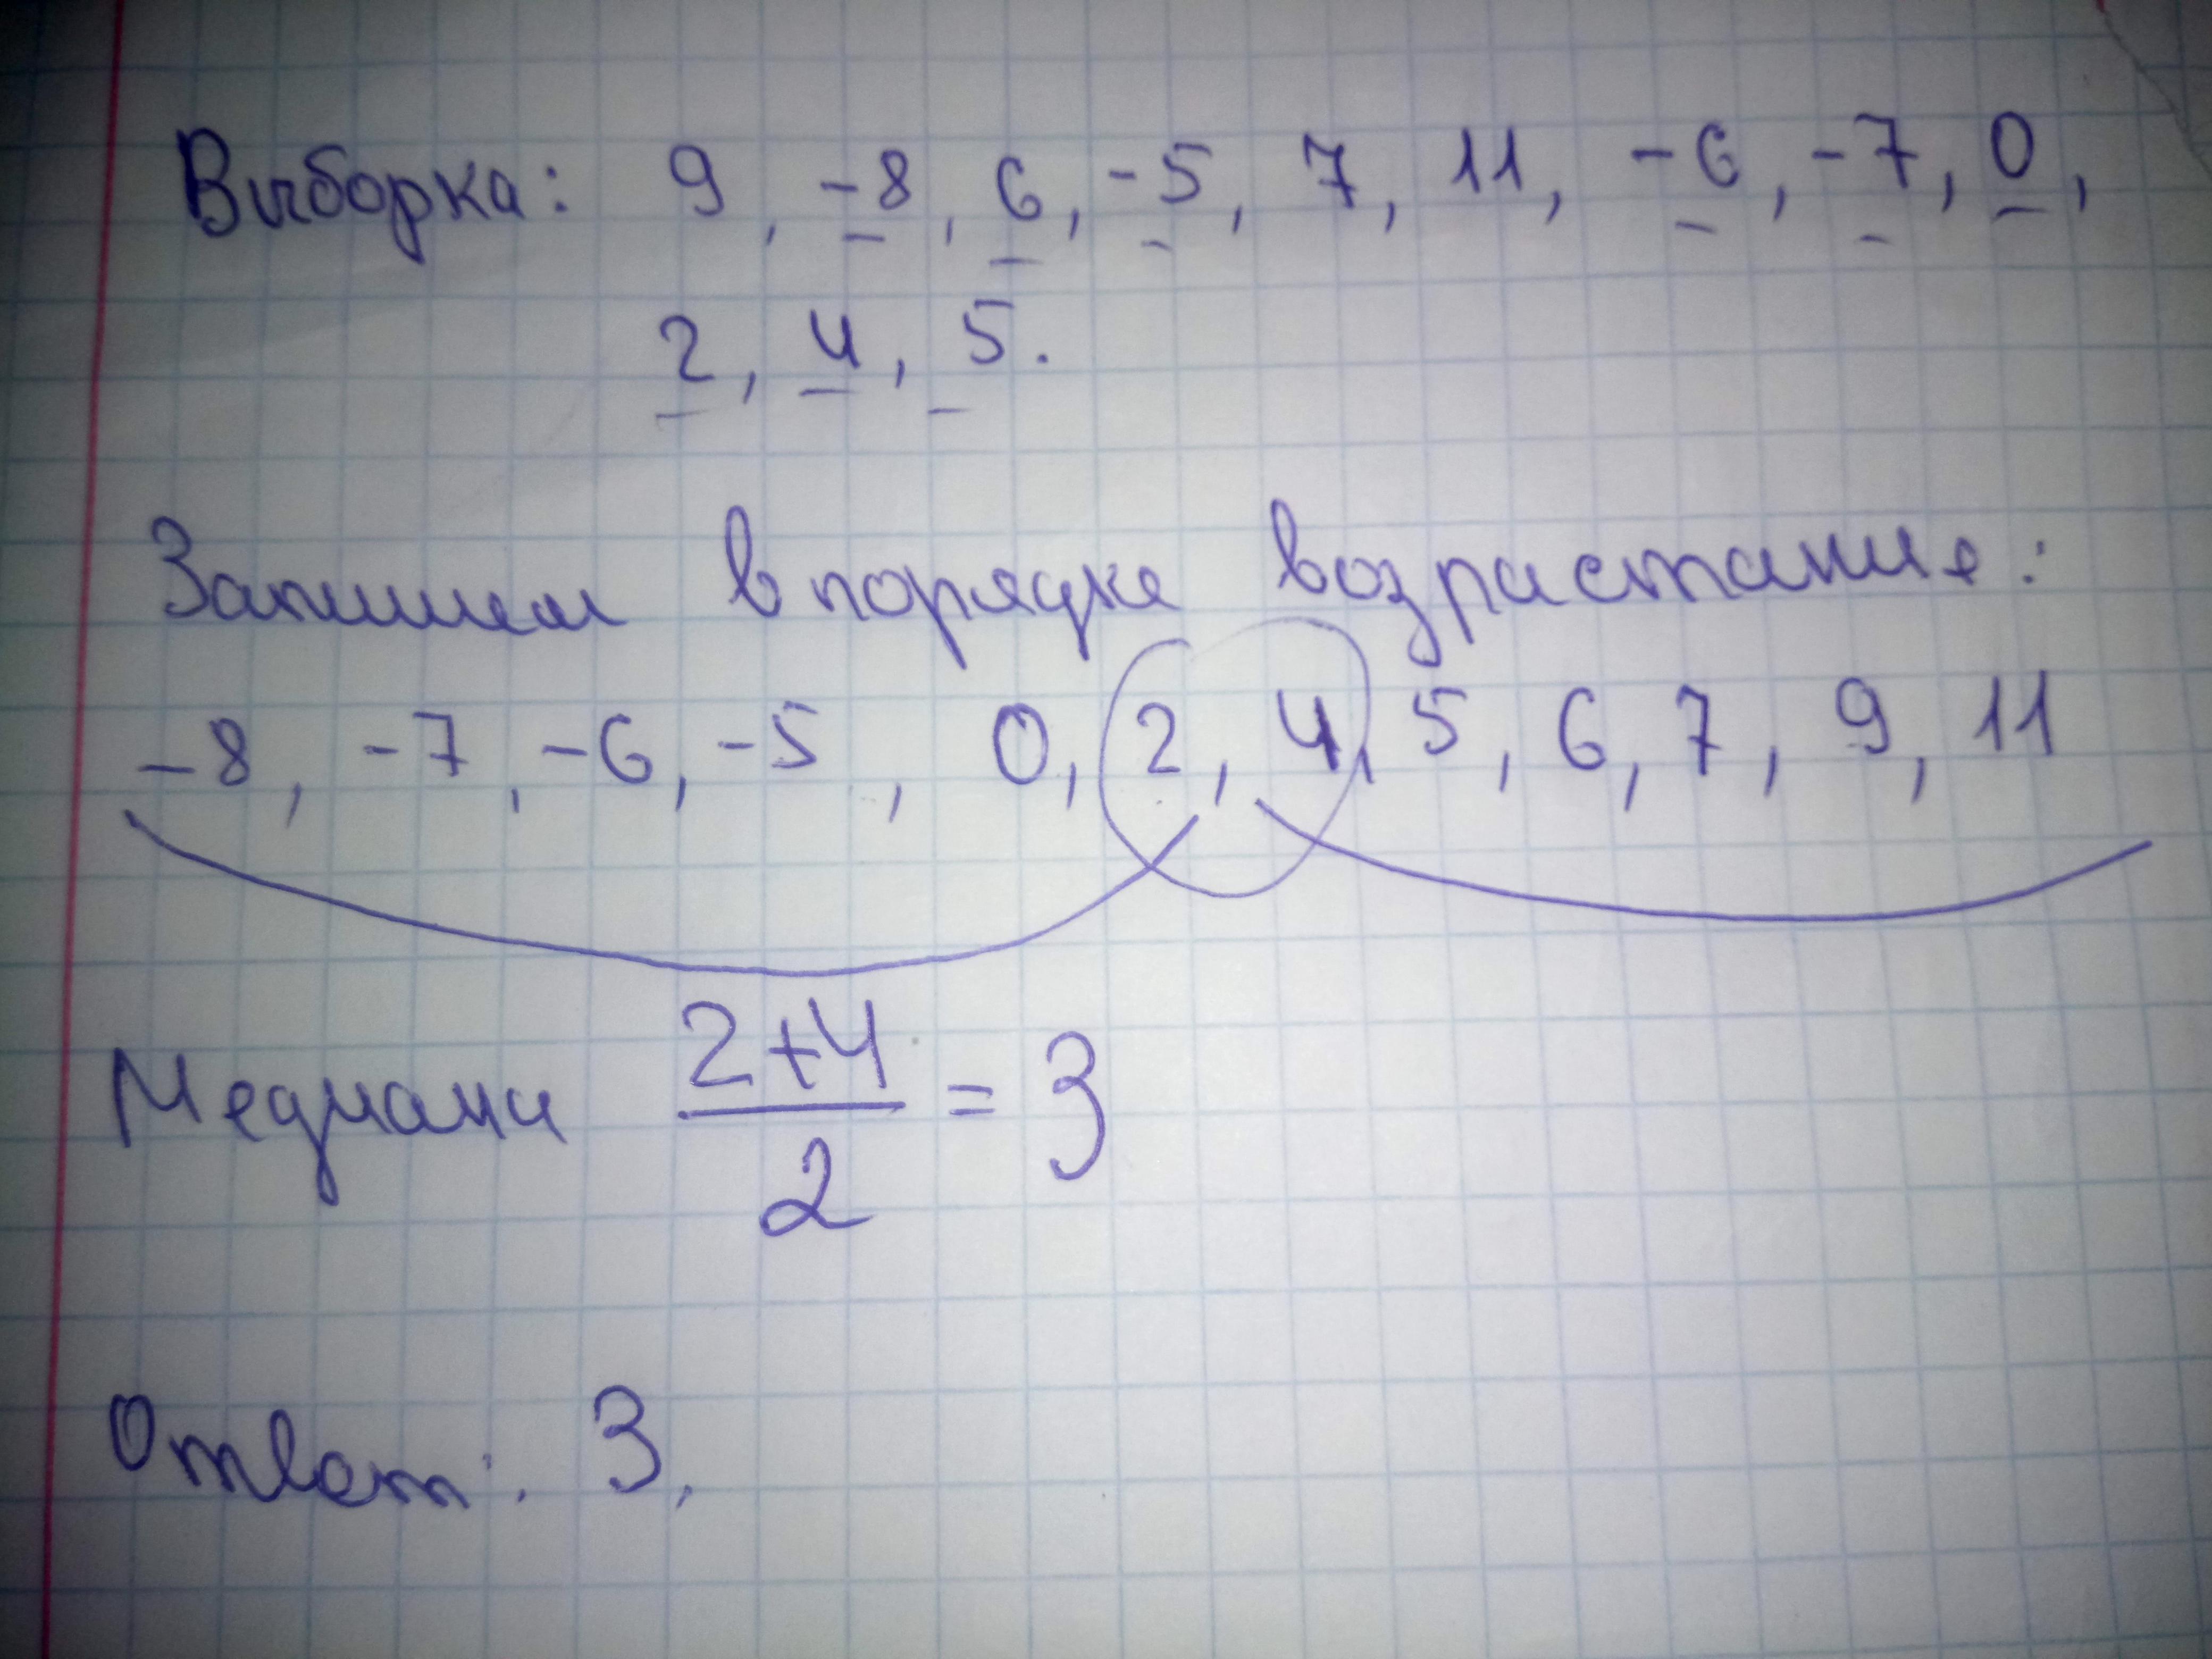 Выборка: 9, -8, 6, -5, 7, 11, -6, -7, 0,
2, 4, 5.
Запишем в порядке возрастание:
-8, -7, -6, -5, 0, 2, 4, 5, 6, 7, 9, 11
Медиана 2+4/2 = 3
Ответ: 3.